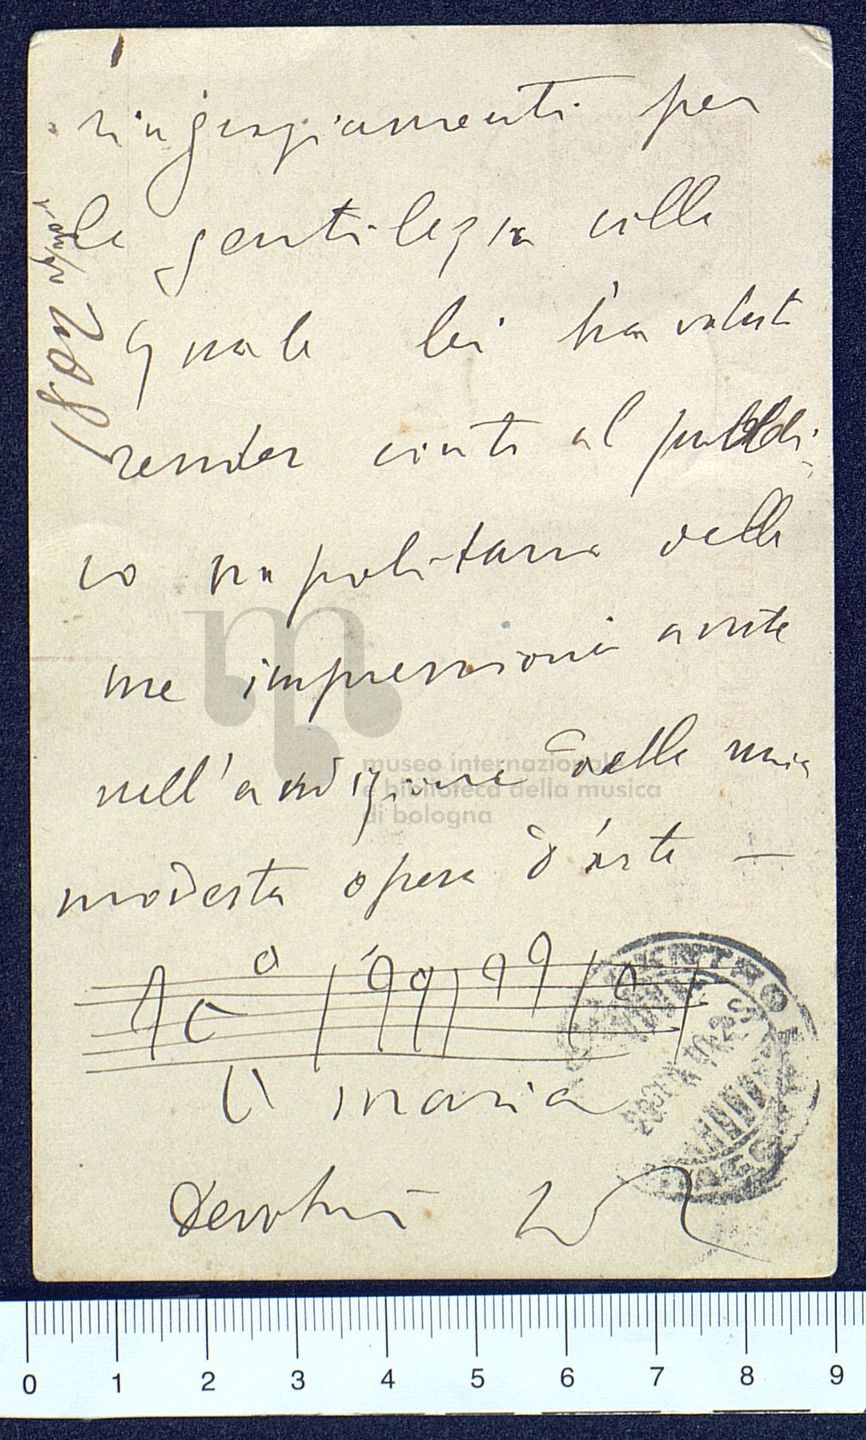 ringraziamenti per
la gentilezza colla
quale lei ha voluto
render conto al pubbli
co napolitano delle
me impressioni avute
nell'audizione della mia
modesta opera d'arte —
O maria
Devotmo
1802
museo internazionale
e biblioteca della musica
di bologna
0 1 2 3 4 5 6 7 8 9